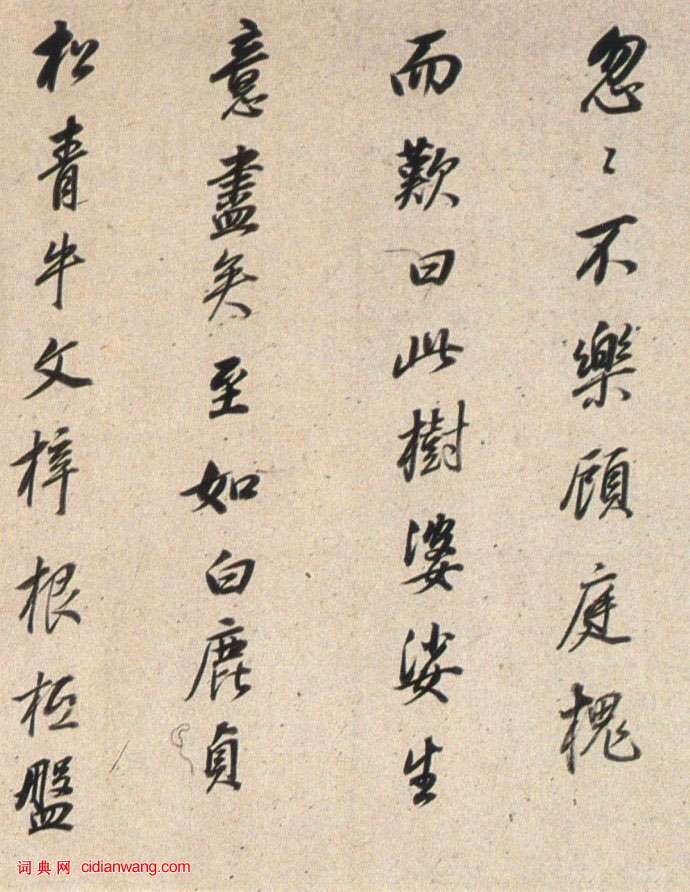 忽〻不樂顧庭槐
而歎曰此樹婆娑生
意盡矣至如白鹿貞
松青牛文梓根柢盤
词典网 cidianwang.com